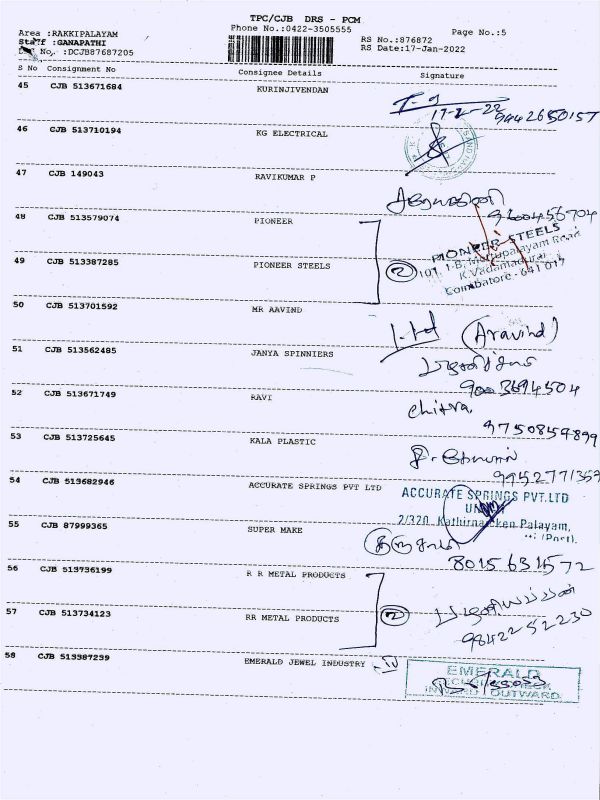 TPC/CJB DRS - PCM
Phone No.:0422-3505555
Page No.:5
Area :RAKKIPALAYAM
Staff :GANAPATHI
No. :DCJB87687205
RS No.:876872
RS Date:17-Jan-2022
S No Consignment No Consignee Details Signature
45 CJB 513671684 KURINJIVENDAN
9442650157
46 CJB 513710194 KG ELECTRICAL
47 CJB 149043 RAVIKUMAR P
9600456704
48 CJB 513579074 PIONEER
PIONEER STEELS
49 CJB 513387285 PIONEER STEELS
2
K.Vadamadurai,
Coimbatore - 641 017
50 CJB 513701592 MR AAVIND
(Aravind)
51 CJB 513562485 JANYA SPINNIERS
9003694504
52 CJB 513671749 RAVI
chitra,
9750854899
53 CJB 513725645 KALA PLASTIC
54 CJB 513682946 ACCURATE SPRINGS PVT LTD
ACCURATE SPRINGS PVT.LTD
55 CJB 87999365 SUPER MAKE
8015631572
56 CJB 513736199 R R METAL PRODUCTS
2
57 CJB 513734123 RR METAL PRODUCTS
9842252230
58 CJB 513387239 EMERALD JEWEL INDUSTRY - IV
EMERALD
OUTWARD